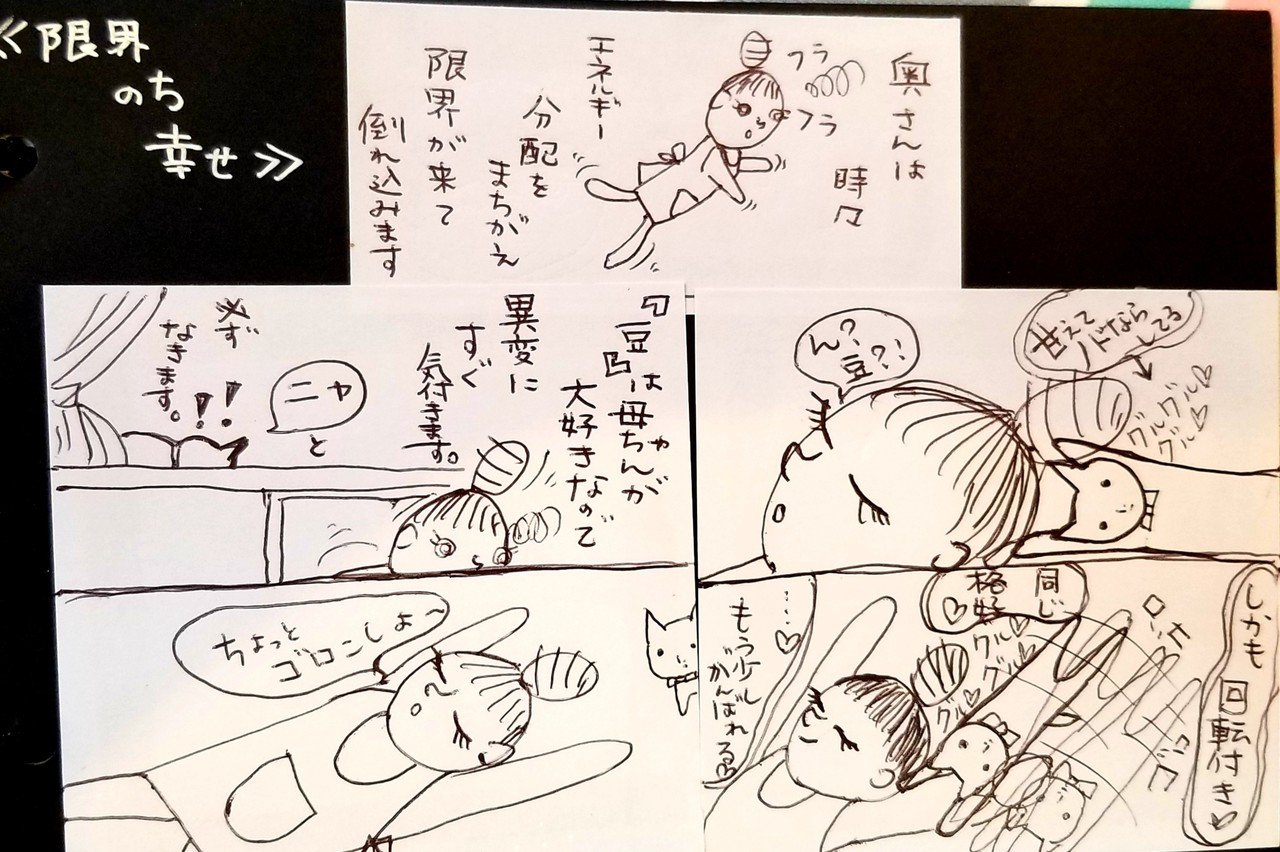 ≪限界
のち
幸せ≫
奥さんは
時々
フラ
フラ
エネルギー
分配を
まちがえ
限界が来て
倒れ込みます
『豆』は母ちゃんが
大好きなので
異変に
すぐ
気付きます。
ニャ
と
必ず
なきます。!!
ちょっと
ゴロンしよ〜
ん?
豆?!
甘えて
ノドならしてる
グルグル♡
グル♡
しかも
回転付き♡
ゴロ
同じ
格好
♡
グル♡
グル♡
グル♡
....♡
もう少し
がんばれる♡